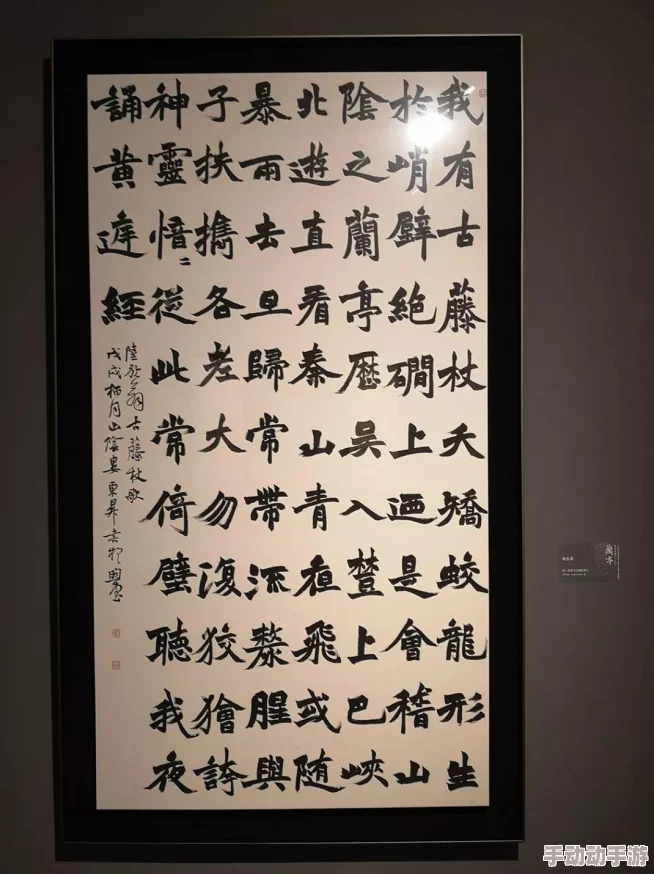 我有古藤杖夭矯蛟龍形生
於峭壁絕磵上迺是會稽山
陰之蘭亭歷吳入楚上巴峽
北遊直看秦山青夜飛或随
暴雨去旦歸常帶流漦腥與
子扶攜各老大勿復狡獪誇
神靈愔〻從此常倚壁聽我夜
誦黃庭經
陸放翁古藤杖歌
戊戌桐月山陰婁東昇書於
蘭亭
手动动手游